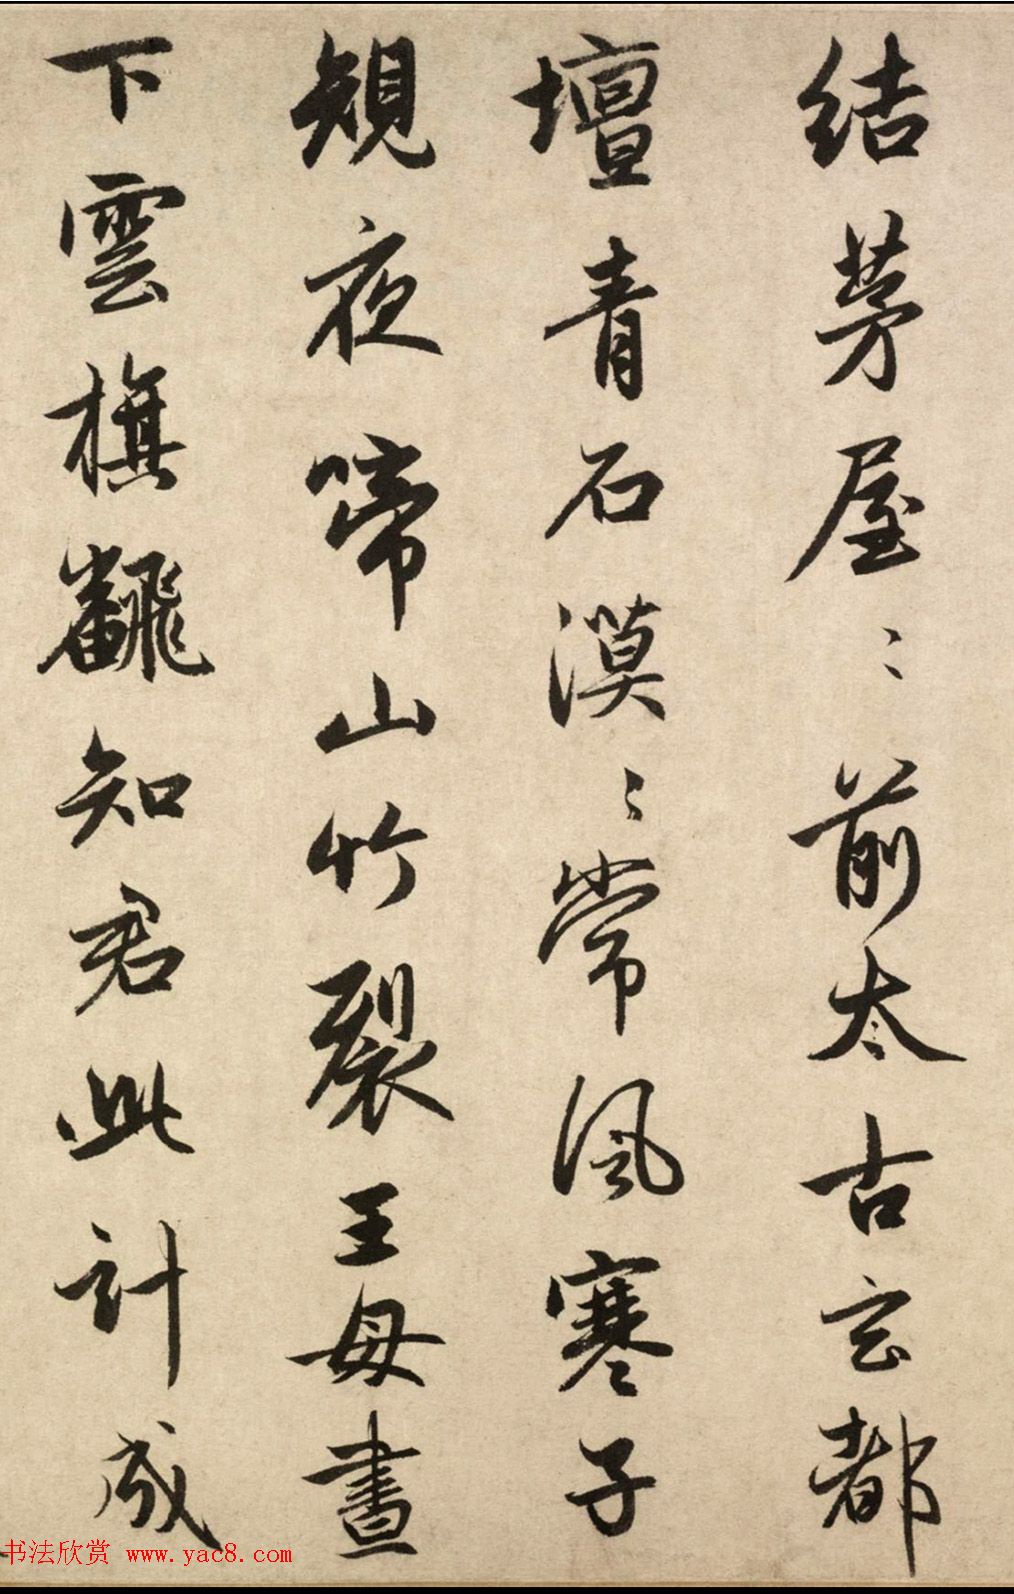 结茅屋〻前太古玄都
壇青石漠〻常風寒子
規夜啼山竹裂王母晝
下雲旗飜知君此計成
书法欣赏 www.yac8.com